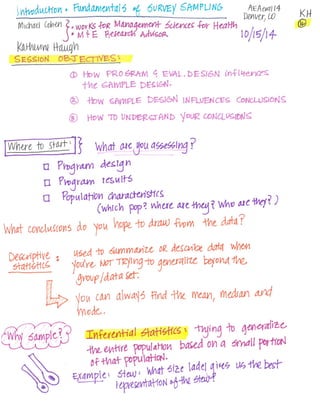 Introduction + Fundamentals of SURVEY SAMPLING
AEAeval14
Denver, CO
KH
Michael Cohen
• works for Management Sciences for Health
• M & E Research Advisor
10/15/14
Kathryn Haugh
SESSION OBJECTIVES:
① HOW PROGRAM & EVAL. DESIGN influences
the SAMPLE DESIGN.
② HOW SAMPLE DESIGN INFLUENCES CONCLUSIONS
③ HOW TO UNDERSTAND YOUR CONCLUSIONS
Where to start: What are you assessing?
□ Program design
□ Program results
□ Population characteristics
(which pop? where are they? who are they?)
What conclusions do you hope to draw from the data?
Descriptive statistics: used to summarize or describe data when
you're NOT TRYING to generalize beyond the
group/data set.
you can always find the mean, median and
mode.
Why Sample?
Inferential Statistics: Trying to generalize
the entire population based on a small portion
of that population.
Example: Stew: What size ladel gives us the best
representation of the stew?